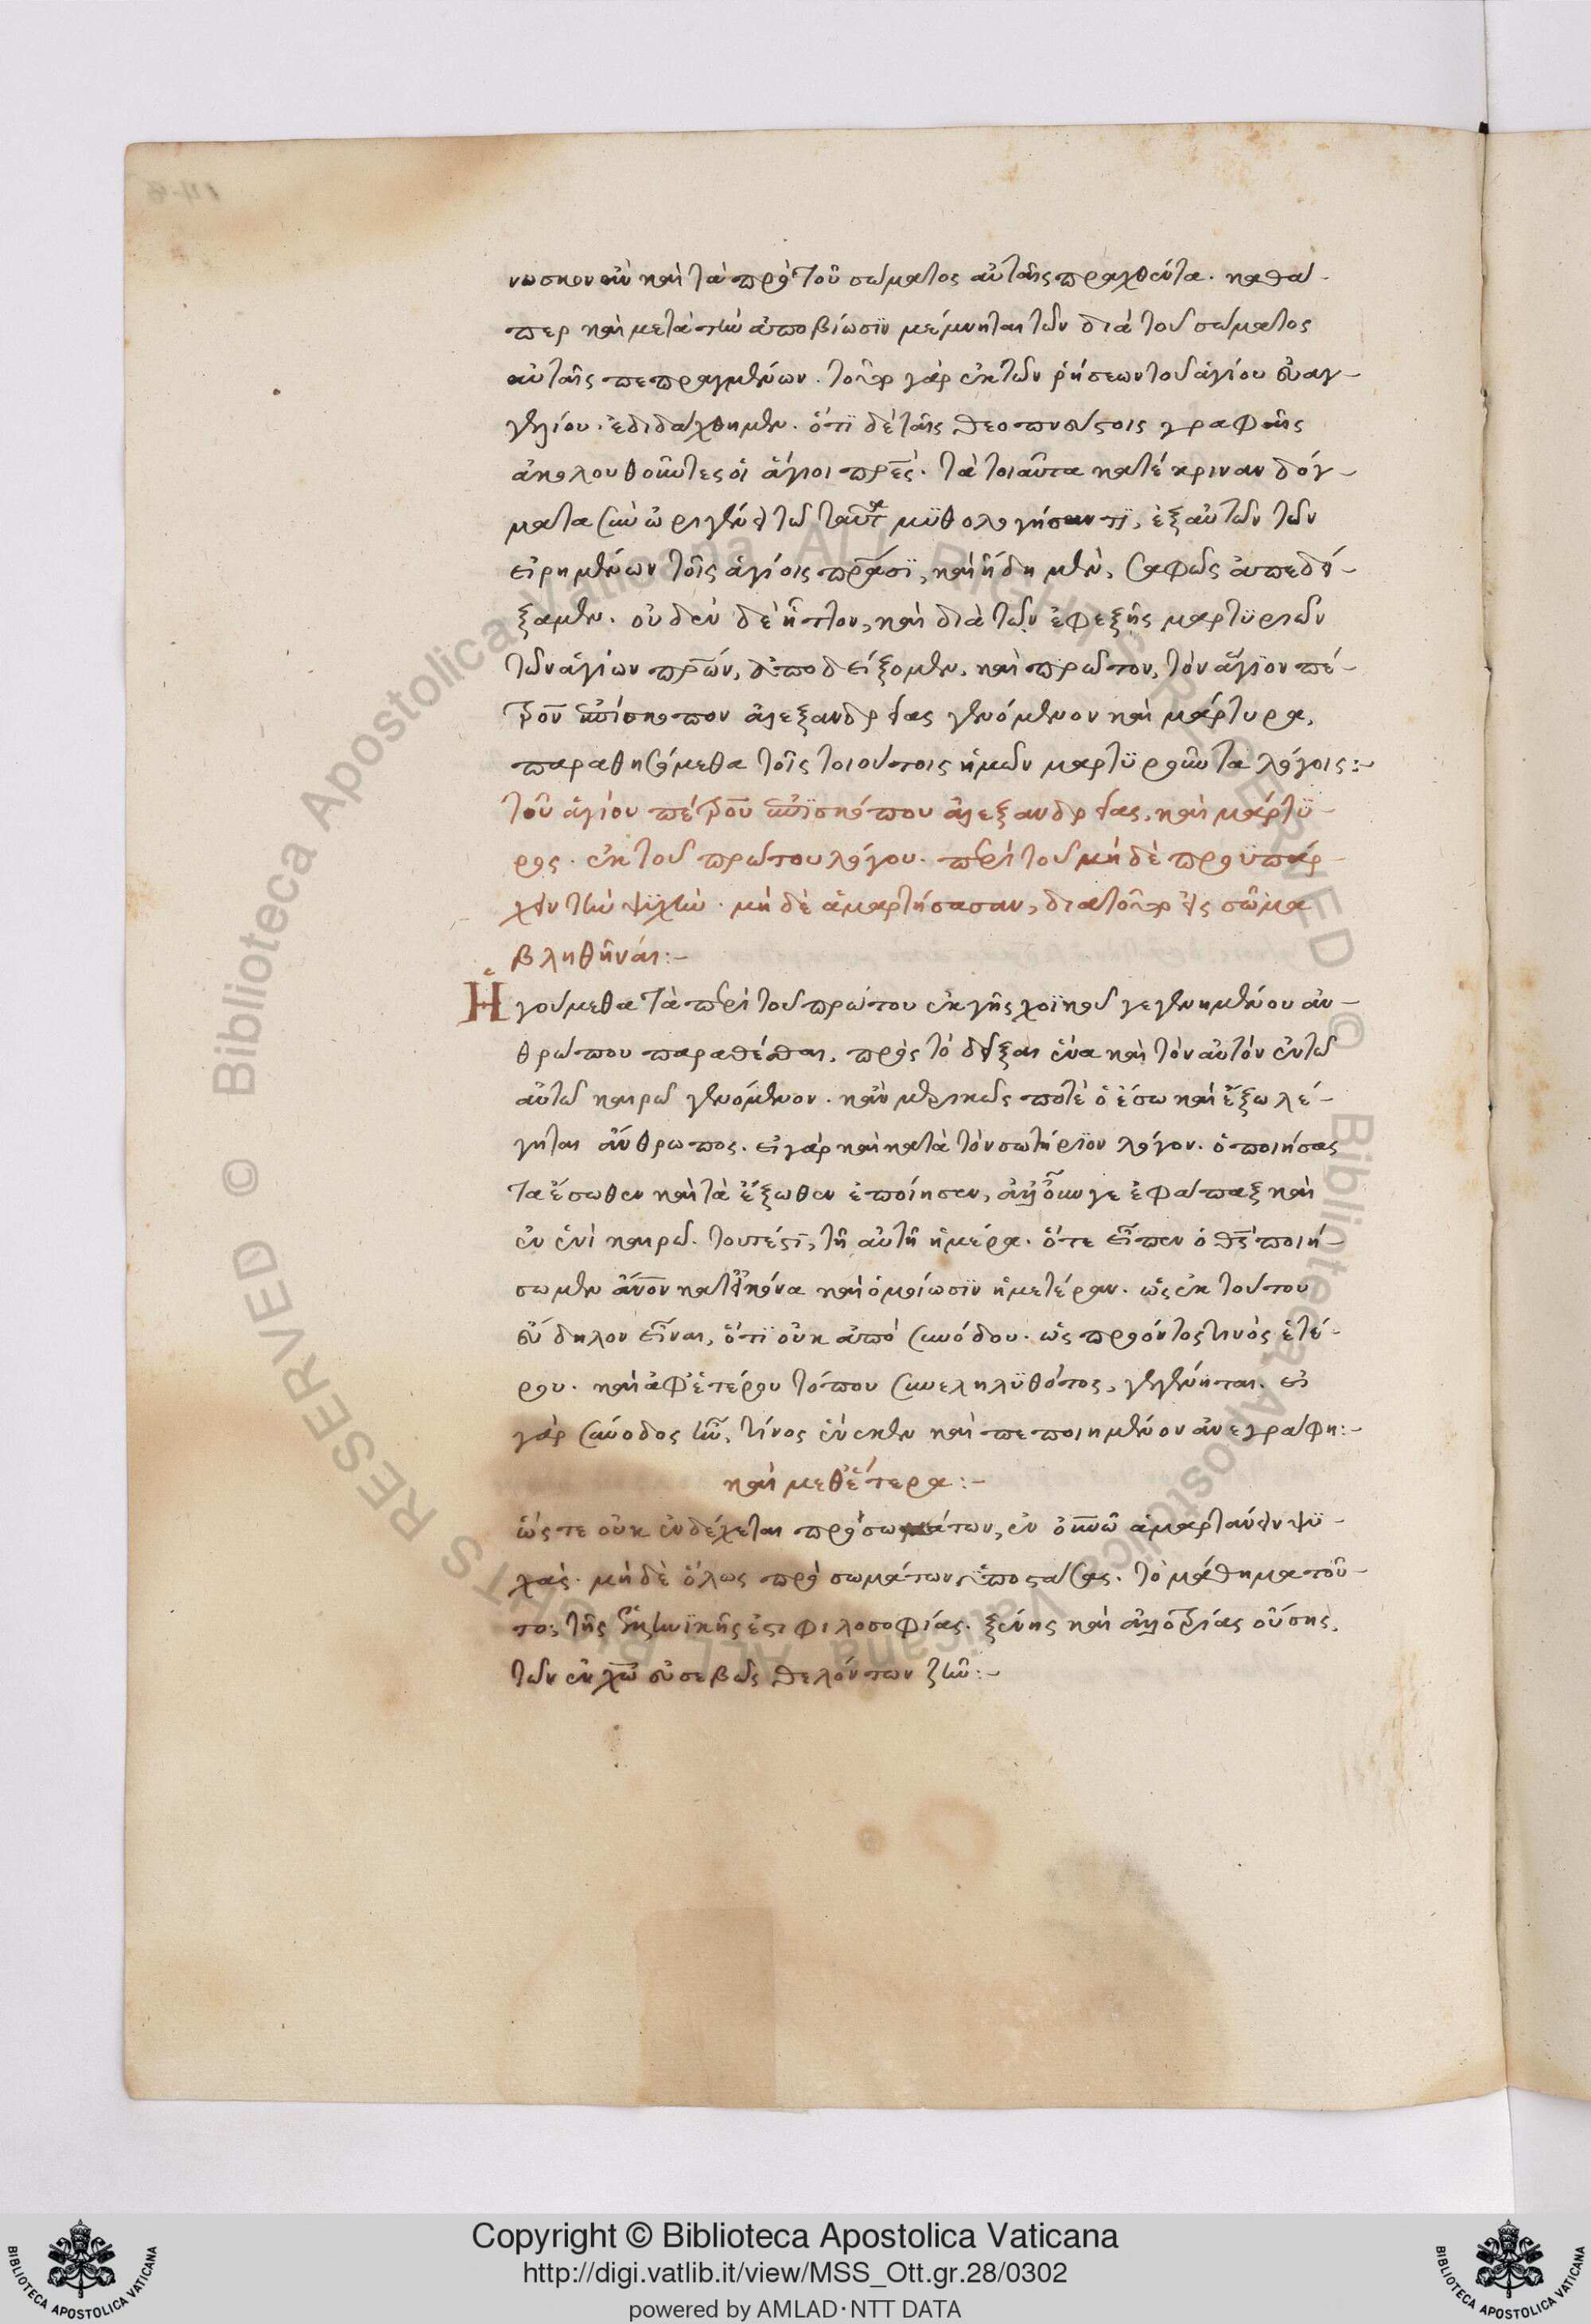 νωσκον ἂν καὶ τὰ πρὸ τοῦ σώματος αὐταῖς πραχθέντα. καθά-
περ καὶ μετὰ τὴν ἀποβίωσϊν μέμνηται τῶν διὰ τοῦ σώματος
αὐταῖς πεπραγμένων. τοῦτο γὰρ ἐκ τῶν ῥήσεων τοῦ ἁγίου εὐαγ-
γελίου ἐδιδάχθημεν. ὅτϊ δὲ ταῖς θεοπνεύστοις γραφαῖς
ἀκολουθοῦντες οἱ ἅγιοι πρ̅ε̅ς. τὰ τοιαῦτα κατέκριναν δόγ-
ματα σὺν ὠριγένει τῶ ταῦτα μϋθολογήσαντϊ, ἐξ αὐτῶν τῶν
εἰρημένων τοῖς ἁγίοις πρ̅ά̅σϊ, καὶ ἤδη μὲν, σαφῶς ἀπεδεί-
ξαμεν. οὐδὲν δὲ ἧττον, καὶ διὰ τῶν ἐφεξῆς μαρτϋριῶν
τῶν ἁγίων πρ̅ων, ἀποδείξομεν. καὶ πρῶτον, τὸν ἅγϊον πέ-
τρον ἐπίσκοπον ἀλεξανδρείας γενόμενον καὶ μάρτυρα,
παραθησόμεθα τοῖς τοιούτοις ἡμῶν μαρτϋροῦντα λόγοις:-
τοῦ ἁγίου πέτρου ἐπϊσκόπου ἀλεξανδρείας, καὶ μάρτϋ-
ρος. ἐκ τοῦ πρώτου λόγου. περὶ τοῦ μὴ δὲ προϋπάρ-
χειν τὴν ψϋχὴν. μὴ δὲ ἁμαρτήσασαν, διατοῦτο εἰς σῶμα
βληθῆναι:-
Ἡγούμεθα τὰ περὶ τοῦ πρώτου ἐκ γῆς χοϊκοῦ γεγενημένου ἀν-
θρώπου παραθέσθαι. πρὸς τὸ δεῖξαι ἕνα καὶ τὸν αὐτὸν ἐν τῶ
αὐτῶ καιρῶ γενόμενον. κἂν μερικῶς ποτὲ ὁ ἔσω καὶ ἔξω λέ-
γηται ἄνθρωπος. εἰ γὰρ καὶ κατὰ τὸν σωτήρϊον λόγον. ὁ ποιήσας
τὰ ἔσωθεν καὶ τὰ ἔξωθεν ἐποίησεν, ἀλλ᾽ οὖν γε ἐφάπαξ καὶ
ἐν ἑνὶ καιρῶ. τουτέστϊ, τῆ αὐτῆ ἡμέρα. ὅτε εἶπεν ὁ θ̅ς̅ ποιή-
σωμεν ἄν̅ο̅ν κατ᾽ εἰκόνα καὶ ὁμοίωσϊν ἡμετέραν. ὡς ἐκ τούτου
εὔδηλον εἶναι, ὅτϊ οὐκ ἀπὸ συνόδου. ὡς προόντος τινὸς ἑτέ-
ρου. καὶ ἀφ᾽ ἑτέρου τόπου συνεληλϋθότος, γεγένηται. εἰ
γὰρ σύνοδος ἦν, τίνος ἕνεκεν καὶ πεποιημένον ἀνεγράφη:-
καὶ μεθ᾽ ἕτερα:-
ὥς τε οὐκ ἐνδέχεται πρὸ σωμάτων, ἐν ο̅υ̅νῶ ἁμαρτάνειν ψϋ-
χάς. μὴ δὲ ὅλως πρὸ σωμάτων ὑποστάσας. τὸ μάθημα τοῦ-
το, τῆς ἑλληνϊκῆς ἐστι φιλοσοφίας. ξένης καὶ ἀλλοτρίας οὔσης,
τῶν ἐν χ̅ω̅ εὐσεβῶς θελόντων ζῆν:-
Copyright © Biblioteca Apostolica Vaticana
http://digi.vatlib.it/view/MSS_Ott.gr.28/0302
powered by AMLAD·NTT DATA
BIBLIOTECA APOSTOLICA VATICANA
BIBLIOTECA APOSTOLICA VATICANA